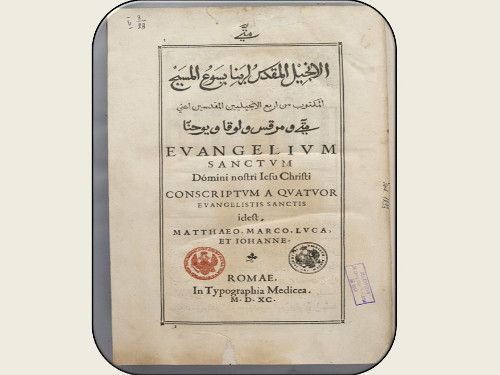 متى
الانجيل المقدس لربنا يسوع المسيح
المكتوب من اربع الانجيليين المقدسين اعني
متى ومرقس ولوقا ويوحنا
EVANGELIVM
SANCTVM
Domini nostri Iesu Christi
CONSCRIPTVM A QVATVOR
EVANGELISTIS SANCTIS
idest,
MATTHAEO, MARCO, LVCA,
ET IOHANNE.
ROMAE,
In Typographia Medicea.
M. D. XC.